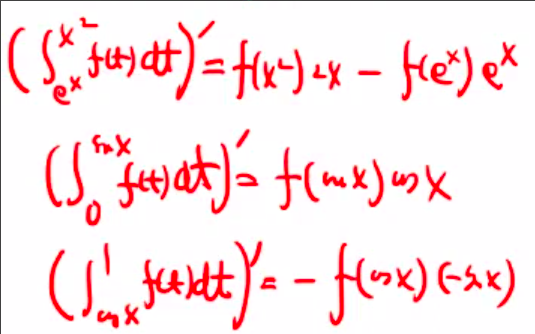 (∫_{e^x}^{x^2} f(t) dt)' = f(x^2) 2x - f(e^x) e^x
(∫_0^{sin x} f(t) dt)' = f(sin x) cos x
(∫_{cos x}^1 f(t) dt)' = - f(cos x) (-sin x)